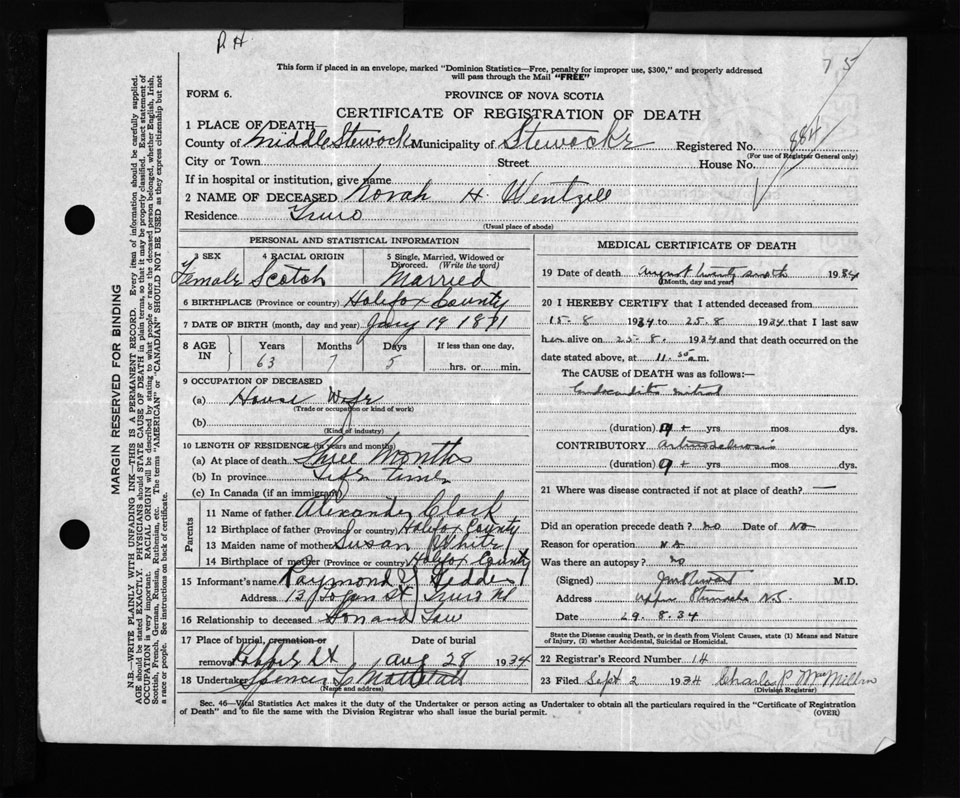 P. H.
75
This form if placed in an envelope, marked "Dominion Statistics—Free, penalty for improper use, $300," and properly addressed
will pass through the Mail "FREE"
FORM 6.
PROVINCE OF NOVA SCOTIA
CERTIFICATE OF REGISTRATION OF DEATH
884
1 PLACE OF DEATH—
County of Middle Stewiacke Municipality of Stewiacke Registered No.
(For use of Registrar General only)
City or Town Street House No.
If in hospital or institution, give name
2 NAME OF DECEASED Norah H. Wentzell
Residence Truro
(Usual place of abode)
PERSONAL AND STATISTICAL INFORMATION
3 SEX 4 RACIAL ORIGIN 5 Single, Married, Widowed or
Divorced. (Write the word)
Female Scotch Married
6 BIRTHPLACE (Province or country) Halifax County
7 DATE OF BIRTH (month, day and year) Jany 19 1871
8 AGE IN Years Months Days If less than one day,
63 7 5 hrs. or min.
9 OCCUPATION OF DECEASED
(a) House Wife
(Trade or occupation or kind of work)
(b)
(Kind of industry)
10 LENGTH OF RESIDENCE (in years and months)
(a) At place of death Three Months
(b) In province Life time
(c) In Canada (if an immigrant)
Parents
11 Name of father Alexander Clark
12 Birthplace of father (Province or country) Halifax County
13 Maiden name of mother Susan White
14 Birthplace of mother (Province or country) Halifax County
15 Informant's name Raymond Geddes
Address 13 Logan St, Truro NS
16 Relationship to deceased Son and Law
17 Place of burial, cremation or Date of burial
removal Aug 28 1934
18 Undertaker Spencer L Mattatall
(Name and address)
MEDICAL CERTIFICATE OF DEATH
19 Date of death August twenty 1934
(Month, day and year)
20 I HEREBY CERTIFY that I attended deceased from
15-8 1934 to 25.8 1934 that I last saw
him alive on 25-8. 1934 and that death occurred on the
date stated above, at 11.50 a.m.
The CAUSE of DEATH was as follows:—
Endocarditis mitral
(duration) 9 + yrs mos dys.
CONTRIBUTORY arteriosclerosis
(duration) 9 + yrs mos dys.
21 Where was disease contracted if not at place of death? —
Did an operation precede death? no Date of No
Reason for operation NA
Was there an autopsy? no
(Signed) M.D.
Address Upper Stewiacke N.S.
Date 29.8.34
State the Disease causing Death, or in death from Violent Causes, state (1) Means and Nature
of Injury, (2) whether Accidental, Suicidal or Homicidal.
22 Registrar's Record Number 14
23 Filed Sept 2 1934 Charles P. MacMillan
(Division Registrar)
Sec. 46—Vital Statistics Act makes it the duty of the Undertaker or person acting as Undertaker to obtain all the particulars required in the "Certificate of Registration
of Death" and to file the same with the Division Registrar who shall issue the burial permit.
(OVER)
MARGIN RESERVED FOR BINDING
N.B.—WRITE PLAINLY WITH UNFADING INK—THIS IS A PERMANENT RECORD. Every item of information should be carefully supplied.
AGE should be stated EXACTLY. PHYSICIANS should STATE CAUSE OF DEATH in plain terms, so that it may be properly classified. Exact statement of
OCCUPATION is very important. RACIAL ORIGIN will be described by stating to what people or race the deceased person belonged, whether English, Irish,
Scottish, French, German, Russian, Ruthenian, etc. The terms "AMERICAN" or "CANADIAN" SHOULD NOT BE USED as they express citizenship but not
a race or people. See instructions on back of certificate.